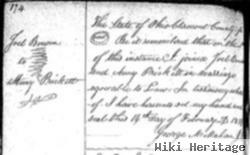 174
Joel Bowen
to
Amy Prickett
The State of Ohio Clermont County ss
Be it remembered that on the
of this instance I joined Joel Bowen
and Amy Prickett in marriage
agreeable to Law. In testimony whereof
I have hereunto set my hand and
seal this 14th day of February
George
Wiki Heritage